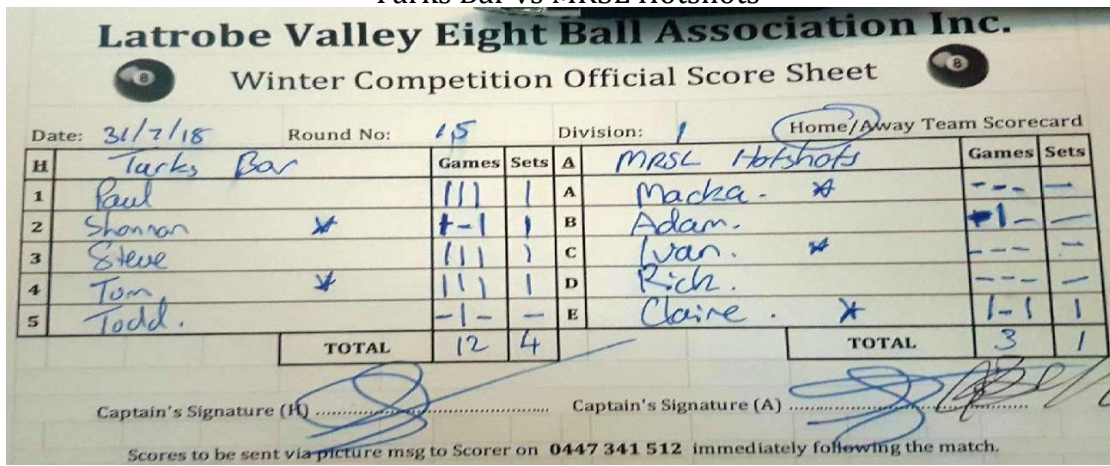 Turks Bar vs MRSL Hotshots
Latrobe Valley Eight Ball Association Inc.
8 Winter Competition Official Score Sheet 8
Date: 31/7/18 Round No: 15 Division: 1 Home/Away Team Scorecard
H Turks Bar Games Sets A MRSL Hotshots Games Sets
1 Paul 111 1 A Macka. * --- -
2 Shannan * 1-1 1 B Adam. -1- -
3 Steve 111 1 C Ivan. * --- -
4 Tom * 111 1 D Rich. --- -
5 Todd. -1- - E Claire. * 1-1 1
TOTAL 12 4 TOTAL 3 1
Captain's Signature (H) .......... Captain's Signature (A) ..........
Scores to be sent via picture msg to Scorer on 0447 341 512 immediately following the match.